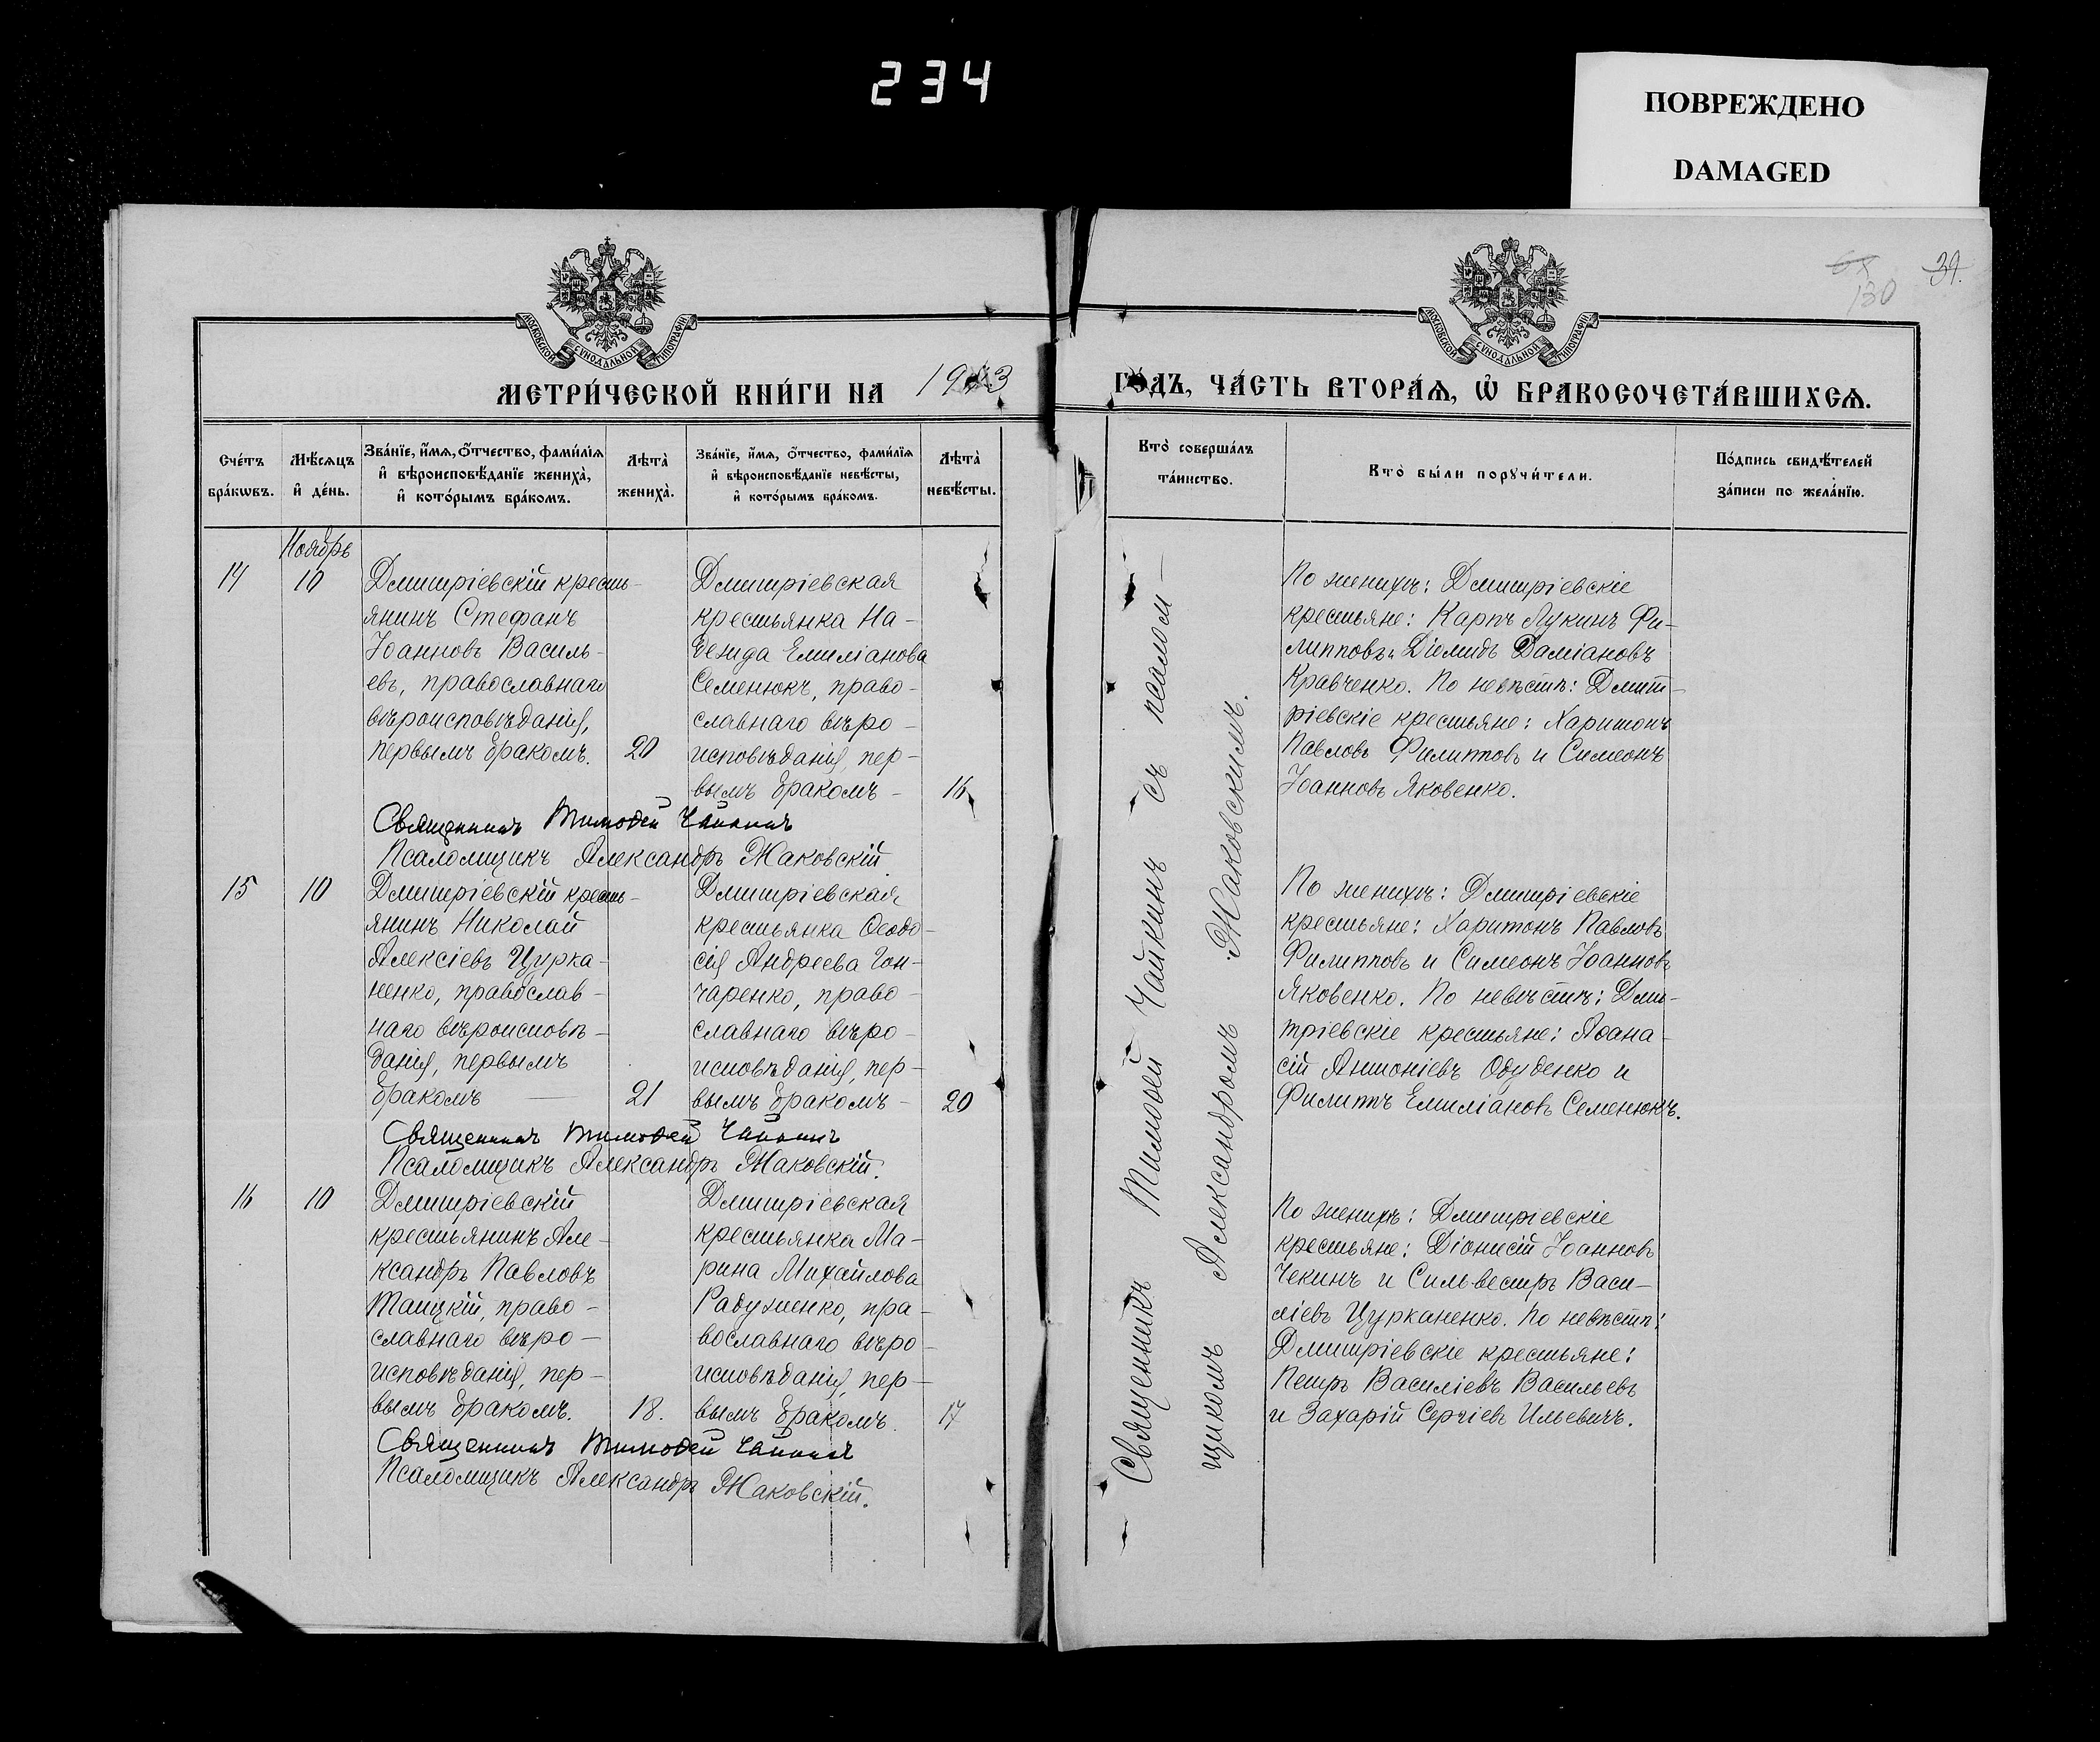 234
ПОВРЕЖДЕНО
DAMAGED
130
39.
МОСКОВСКОЙ СУНОДАЛЬНОЙ ТИПОГРАФІИ
МОСКОВСКОЙ СУНОДАЛЬНОЙ ТИПОГРАФІИ
МЕТРИ́ЧЕСКОЙ КНИ́ГИ НА 1913
ГО́ДЪ, ЧА́СТЬ ВТОРА́Ѧ, Ѽ БРАКОСОЧЕТА́ВШИХСѦ.
Сче́тъ
бра́кѡвъ.
Мѣ́сяцъ
и҆ де́нь.
Зва́нїе, и҆́мѧ, ѻ҆́тчество, фами́лїѧ
и҆ вѣроисповѣ́данїе жениха̀,
и҆ кото́рымъ бра́комъ.
Лѣта̀
жениха̀.
Зва́нїе, и҆́мѧ, ѻ҆́тчество, фами́лїѧ
и҆ вѣроисповѣ́данїе невѣ́сты,
и҆ кото́рымъ бра́комъ.
Лѣта̀
невѣ́сты.
Кто̀ соверша́лъ
та́инство.
Кто̀ бы́ли порꙋчи́тели.
По́дпись свидѣ́телей
за́писи по жела́нїю.
Ноябрь
14
10
Дмитріевскій кресть-
янинъ Стефанъ
Іоанновъ Василь-
евъ, православнаго
вѣроисповѣданія,
первымъ бракомъ.
20
Дмитріевская
крестьянка На-
дежда Емиліанова
Семенюкъ, право-
славнаго вѣро-
исповѣданія, пер-
вымъ бракомъ -
16
По женихѣ: Дмитріевскіе
крестьяне: Карпъ Лукинъ Фи-
липповъ и Діомидъ Даміановъ
Кравченко. По невѣстѣ: Дмит-
ріевскіе крестьяне: Харитонъ
Павловъ Филипповъ и Симеонъ
Іоанновъ Яковенко.
Священникъ Тимоѳей Чайкинъ
Псаломщикъ Александръ Жаковскій.
15
10
Дмитріевскій кресть-
янинъ Николай
Алексіевъ Цурка-
ненко, православ-
наго вѣроисповѣ-
данія, первымъ
бракомъ —
21
Дмитріевская
крестьянка Ѳеодо-
сія Андреева Гон-
чаренко, право-
славнаго вѣро-
исповѣданія, пер-
вымъ бракомъ -
20
По женихѣ: Дмитріевскіе
крестьяне: Харитонъ Павловъ
Филипповъ и Симеонъ Іоанновъ
Яковенко. По невѣстѣ: Дми-
тріевскіе крестьяне: Аѳана-
сій Антоніевъ Одуденко и
Филиппъ Емиліановъ Семенюкъ.
Священникъ Тимоѳей Чайкинъ
Псаломщикъ Александръ Жаковскій.
16
10
Дмитріевскій
крестьянинъ Але-
ксандръ Павловъ
Таицкій, право-
славнаго вѣро-
исповѣданія, пер-
вымъ бракомъ.
18.
Дмитріевская
крестьянка Ма-
рина Михайлова
Радуженко, пра-
вославнаго вѣро-
исповѣданія, пер-
вымъ бракомъ.
17
По женихѣ: Дмитріевскіе
крестьяне: Діонисій Іоанновъ
Чекинъ и Сильвестръ Васи-
ліевъ Цурканенко. По невѣстѣ:
Дмитріевскіе крестьяне:
Петръ Василіевъ Васильевъ
и Захарій Сергіевъ Ильевичъ.
Священникъ Тимоѳей Чайкинъ
Псаломщикъ Александръ Жаковскій.
Священникъ Тимоѳей Чайкинъ съ псалом-
щикомъ Александромъ Жаковскимъ.